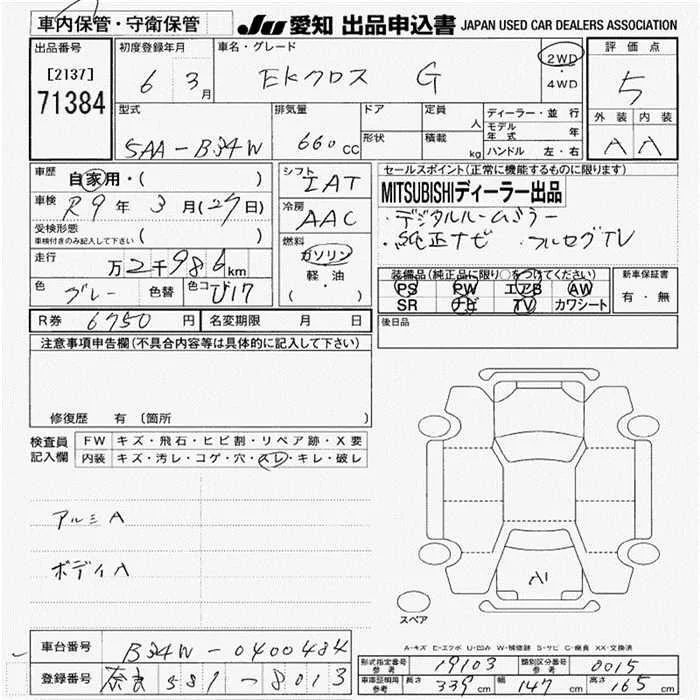 車内保管・守衛保管
JU 愛知 出品申込書 JAPAN USED CAR DEALERS ASSOCIATION
出品番号 初度登録年月 車名・グレード 評価点
[2137] 71384 6 3月 EKクロス G 2WD・4WD 5
型式 排気量 ドア 定員 人 ディーラー・並行 外装 内装
5AA-B34W 660cc 形状 積載 kg モデル年式 年 A A
ハンドル 左・右
車歴 自家用・( ) シフト IAT セールスポイント(正常に機能するものに限ります)
車検 R9年 3月(27日) 冷房 AAC MITSUBISHIディーラー出品
受検形態 車検付きのみ記入して下さい ( ) 燃料 ・デジタルルームミラー
走行 万2千986km ガソリン ・純正ナビ ・フルセグTV
色 グレー 色替 色コード U17 軽・油 ( ) 装備品(純正品に限り○をつけてください) 新車保証書
PS PW エアB AW 有・無
SR ナビ TV カワシート
R券 6750円 名変期限 月 日 後日品
注意事項申告欄(不具合内容等は具体的に記入して下さい)
修復歴 有 〔箇所 〕
検査員記入欄 FW キズ・飛石・ヒビ割・リペア跡・X要
内装 キズ・汚レ・コゲ・穴・スレ・キレ・破レ
アルミA
ボディA
A1
スペア
A-キズ E-エクボ U-凹み W-補修跡 S-サビ C-腐食 XX-交換済
車台番号 B34W-0400484 形式指定番号 参考 19103 類別区分番号 参考 0015
登録番号 奈良 581-8013 車庫証明用 参考 長さ 339cm 幅 147cm 高さ 165cm